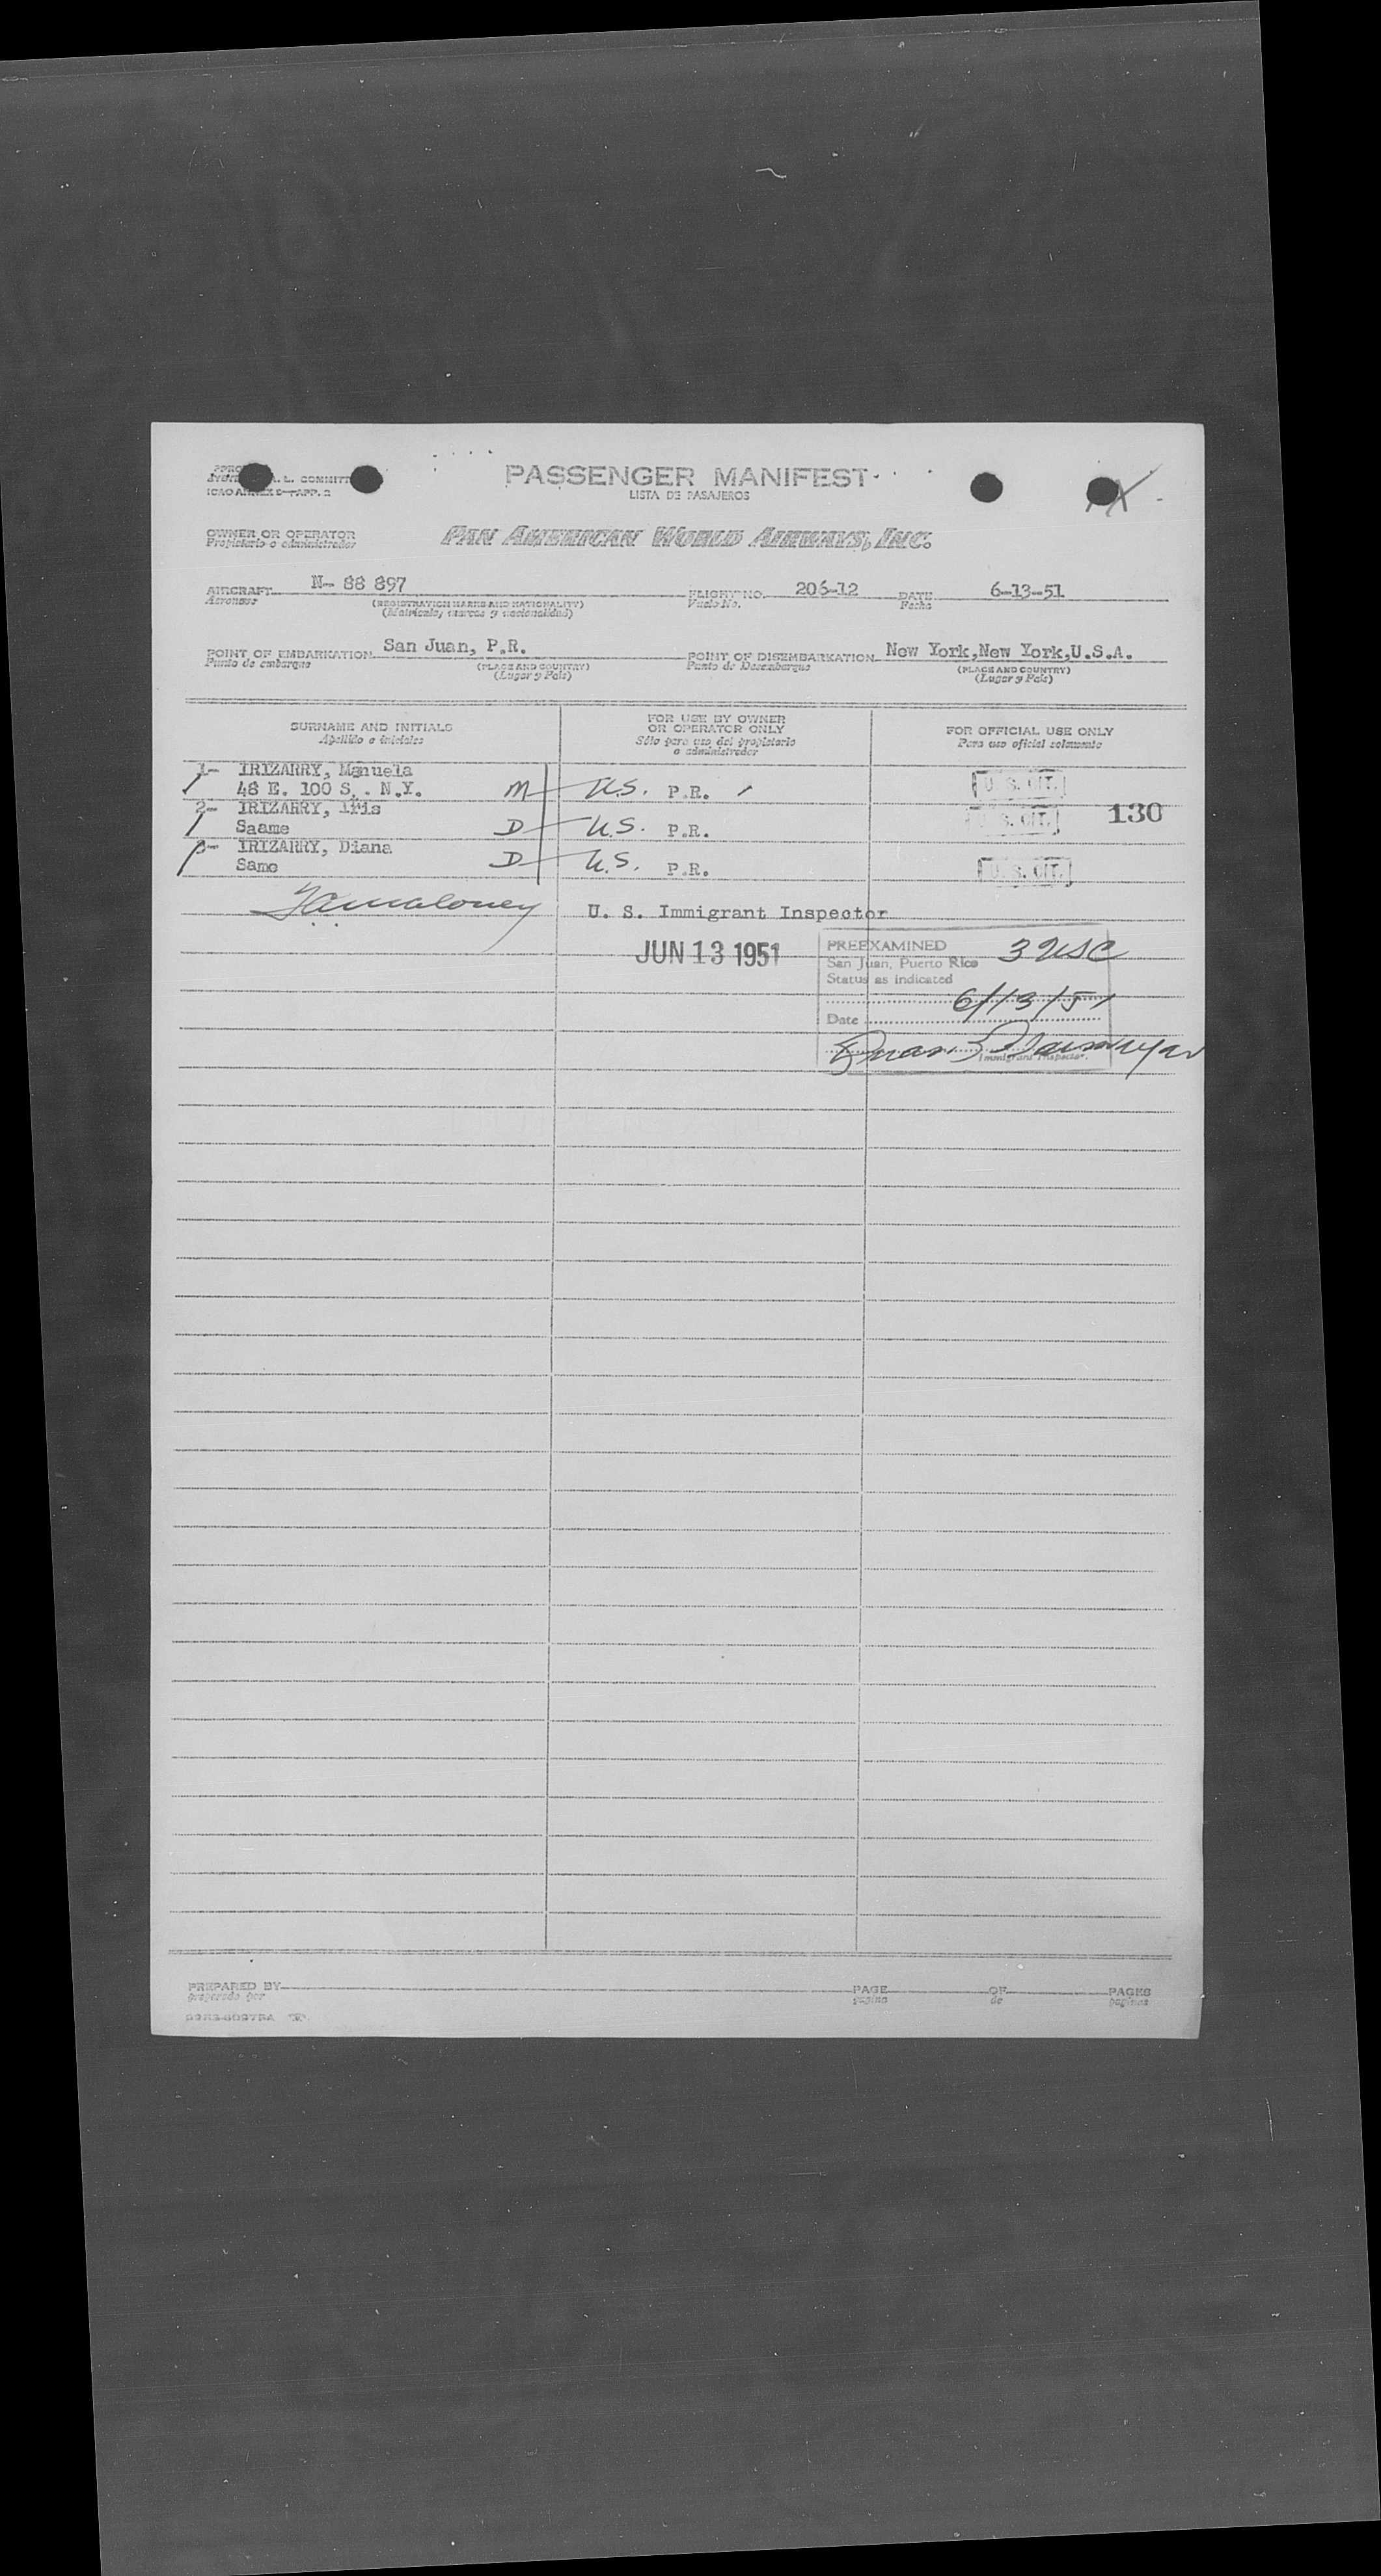 PASSENGER MANIFEST
LISTA DE PASAJEROS
L. COMMITT
ICAO ANNEX 9-APP. 2
X
OWNER OR OPERATOR
Propietario o administrador
PAN AMERICAN WORLD AIRWAYS, INC.
AIRCRAFT N- 88 897 FLIGHT NO. 206-12 DATE 6-13-51
Aeronave (REGISTRATION MARKS AND NATIONALITY) Vuelo No. Fecha
(Matricula, marcas y nacionalidad)
POINT OF EMBARKATION San Juan, P.R. POINT OF DISEMBARKATION New York,New York,U.S.A.
Punto de embarque (PLACE AND COUNTRY) Punto de Desembarque (PLACE AND COUNTRY)
(Lugar y Pais) (Lugar y Pais)
SURNAME AND INITIALS FOR USE BY OWNER OR OPERATOR ONLY FOR OFFICIAL USE ONLY
Apellido e iniciales Sólo para uso del propietario o administrador Para uso oficial solamente
1- IRIZARRY, Manuela
48 E. 100 S. . N.Y. M U.S. P.R. U. S. CIT.
2- IRIZARRY, Iris 130
Saame D U.S. P.R. U. S. CIT.
3- IRIZARRY, Diana
Same D U.S. P.R. U. S. CIT.
U. S. Immigrant Inspector
JUN 13 1951
PREEXAMINED 3 USC
San Juan, Puerto Rico
Status as indicated
Date 6/13/51
Immigrant Inspector.
PREPARED BY PAGE OF PAGES
preparado por pagina de paginas